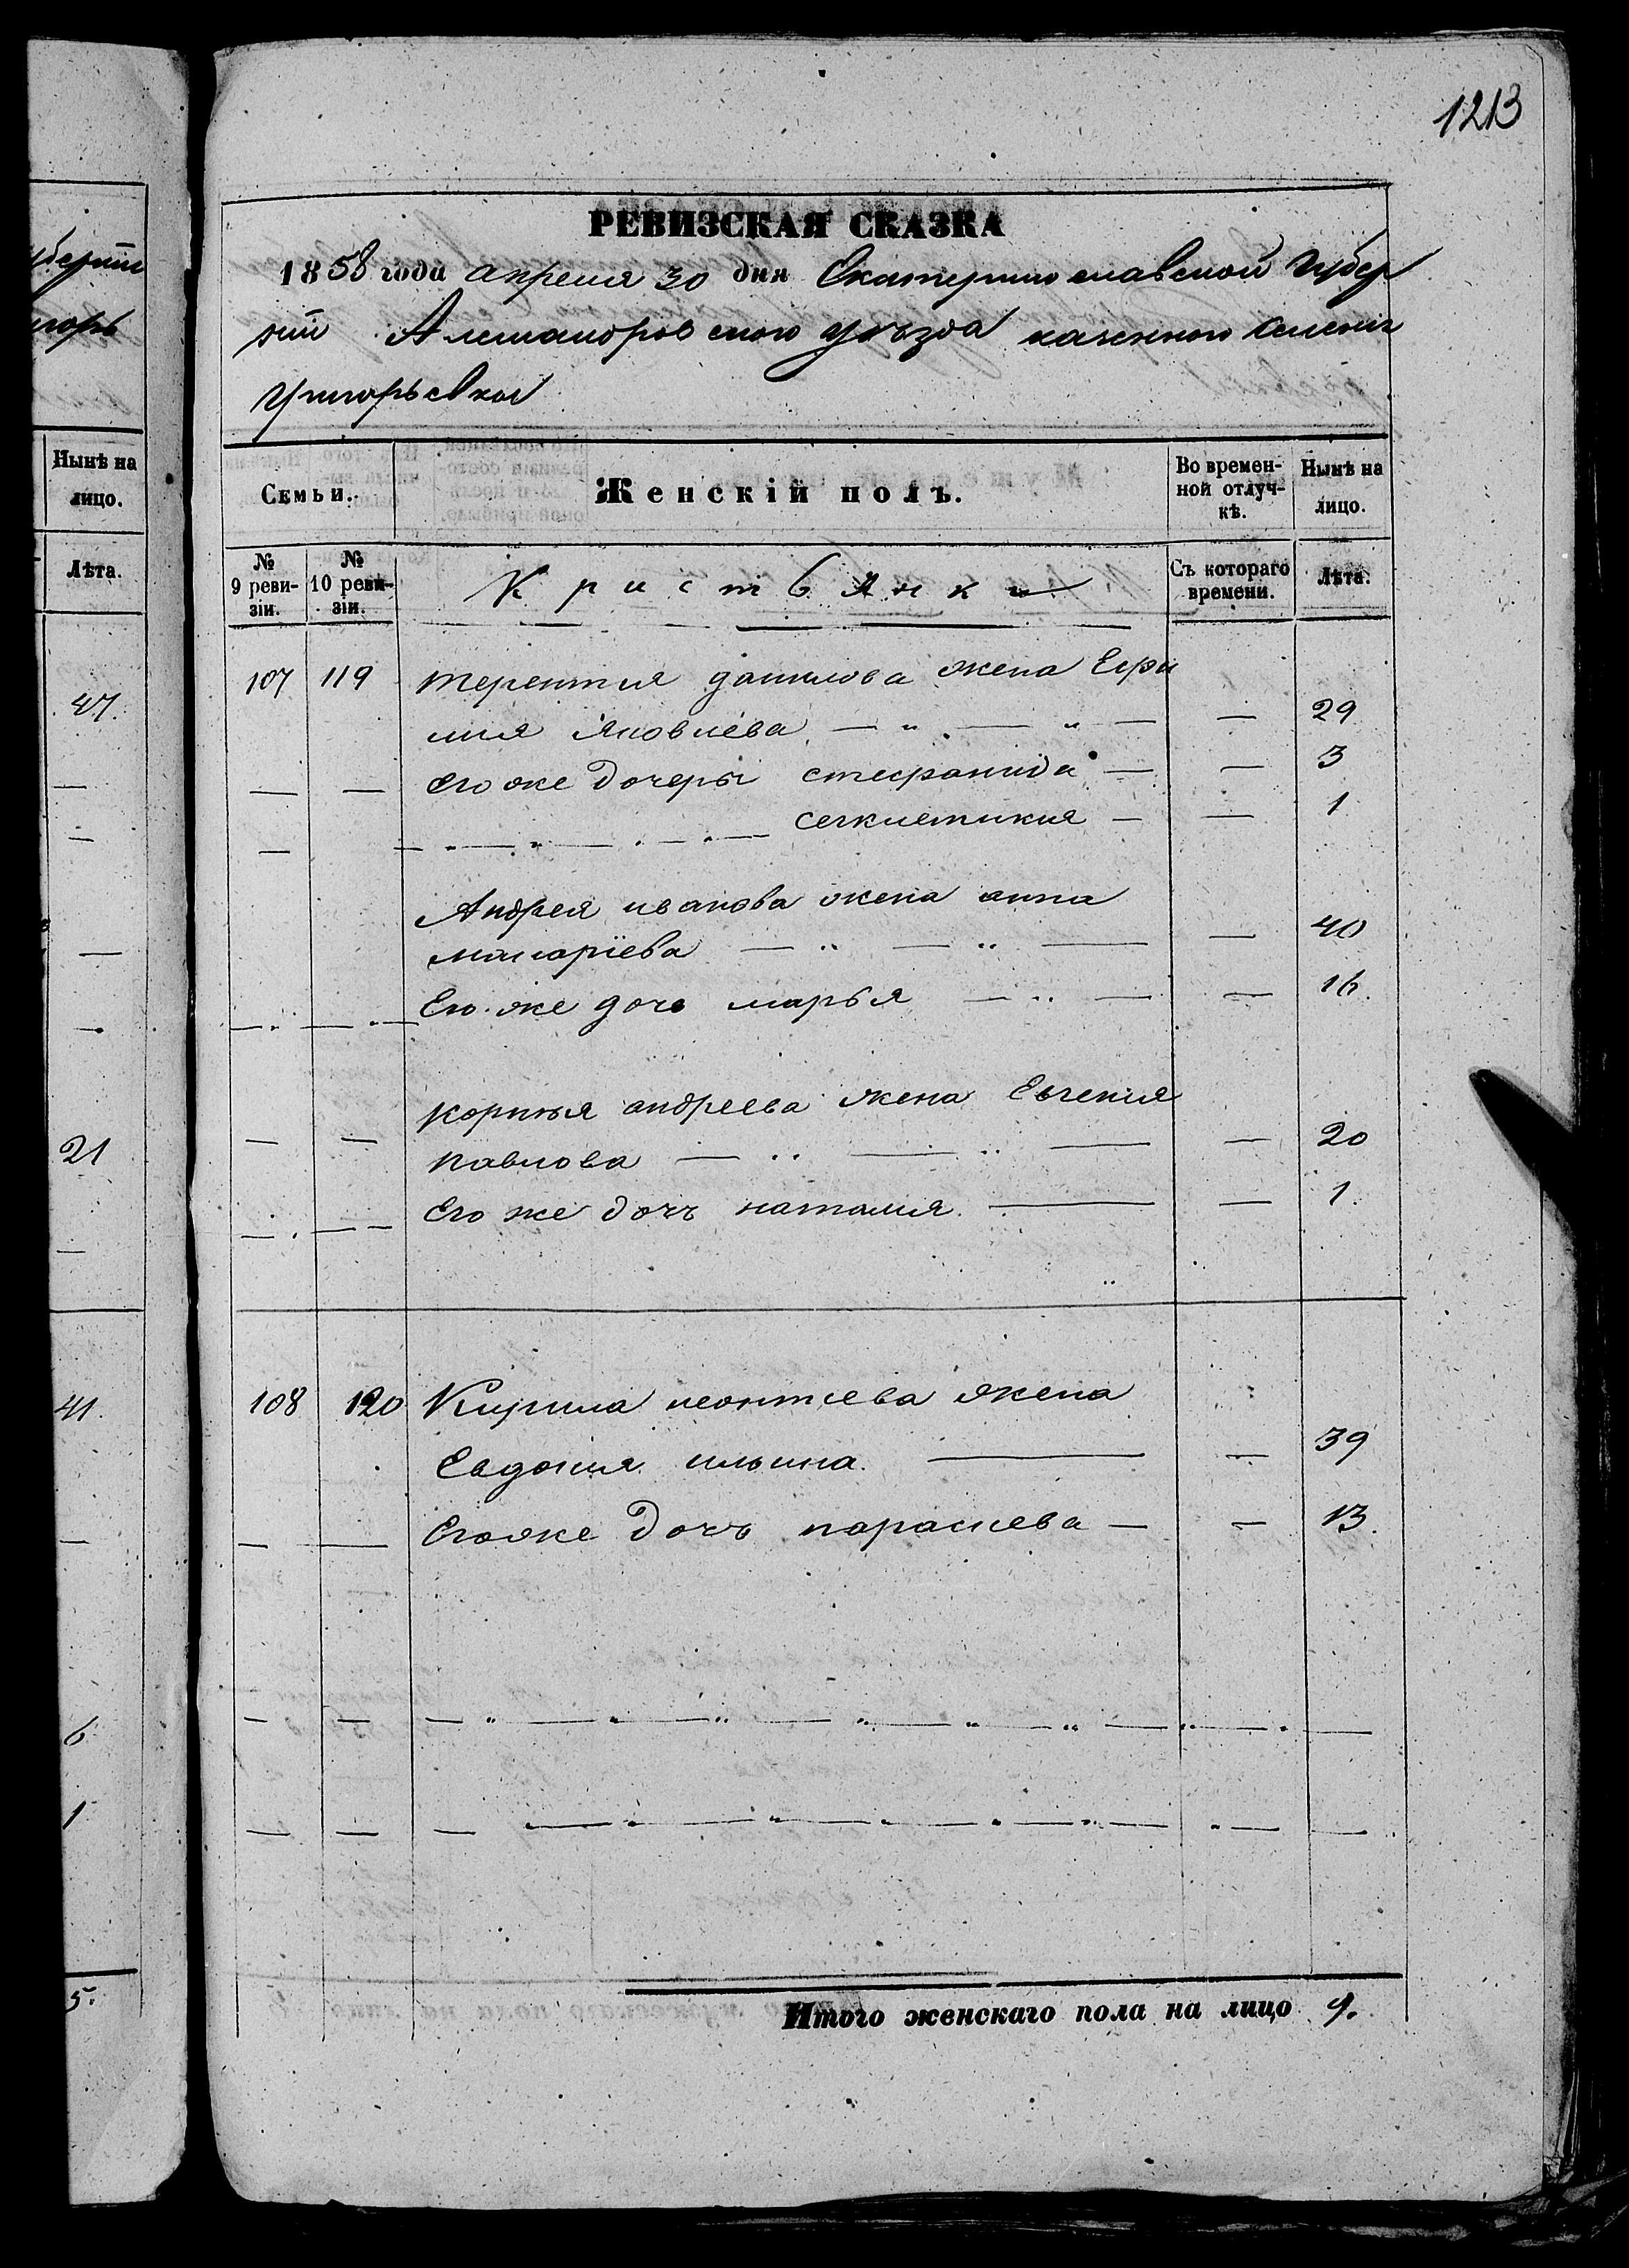 1213
РЕВИЗСКАЯ СКАЗКА
1858 года апреля 30 дня Екатеринославской Губер
нии Александровского уѣзда казенного селенія
Григорьевки
Семьи.
Женскій полъ.
Во времен-
ной отлуч-
кѣ.
Нынѣ на
лицо.
№
9 реви-
зіи.
№
10 реви-
зіи.
Кристьянки
Съ котораго
времени.
Лѣта.
107 119 терентия данилова жена Ефи
мия Яковлева — „ — „ — — 29
— — его же дочеры стефанида — — 3
— — „ — „ — „ — — 1
Андрея иванова жена анна
макаріева — „ — „ — — 40
— „ — „ — Его же дочь марья — „ — — 16.
— — корнѣя андреева жена Евгения
павлова — „ — „ — — 20
— „ — — Его же дочъ наталия. — — 1.
108 120 Кирила леонтиева жена
Евдокия ильина. — — 39
— — Егоже дочъ параскева — — 13.
Итого женскаго пола на лицо 9.
уберніи
игорь
Нынѣ на
лицо.
Лѣта.
47.
21
41.
6
1
5.